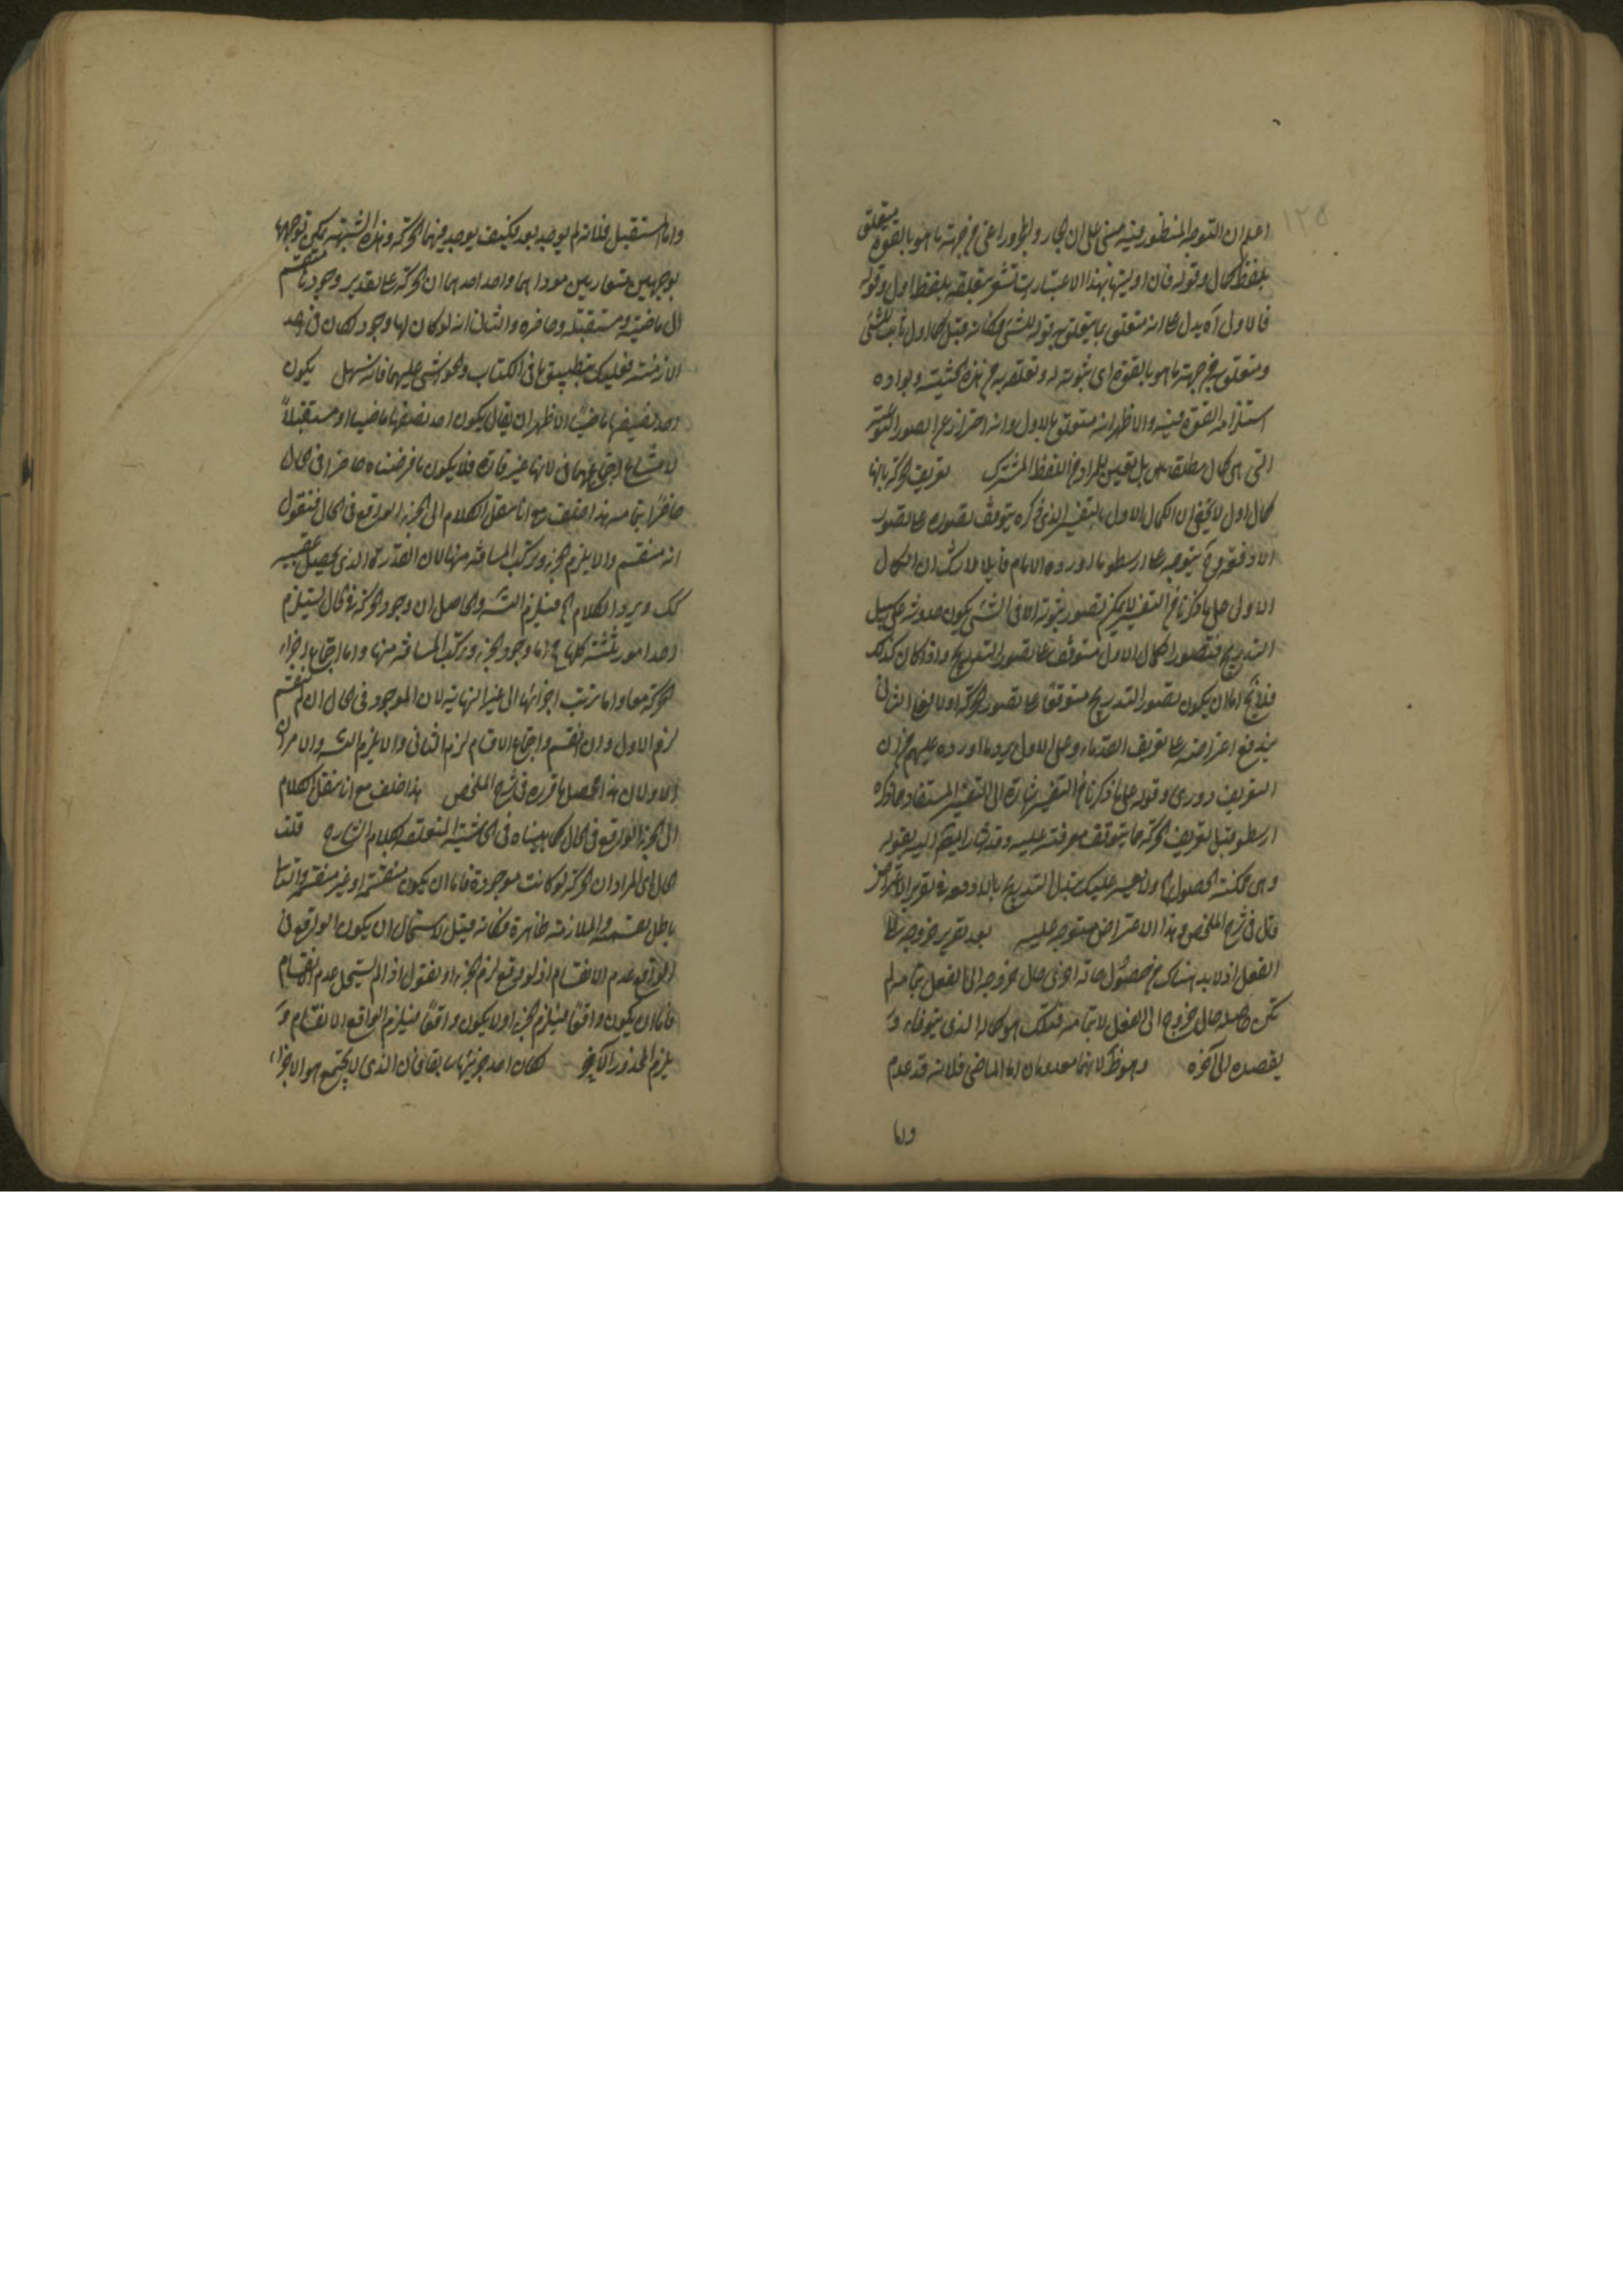 ١٢٥
اعلم ان التوجه المنظور فيه مبنى على ان الجار والمجرور اعنى من جهة ما هو بالقوة يتعلق
بلفظ كمال وقوله فان اوليتها بهذا الاعتبار تشعر بتعلقه بلفظ اول وقوله
فالاول آه يدل على انه متعلق بما يتعلق به قوله للشئ فكانه قيل كمال اول ثابت للشئ
ومتعلق به من جهة ما هو بالقوة اى ثبوته له وتعلقه به من هذه الحيثية
استلزامه القوة فيه والاظهر انه متعلق بالاول وانه احتراز عن الصور النوعية
التى هى كمال مطلقا بل تعيين للمراد من اللفظ المشترك تعريف الحركة بانها
كمال اول لا يخفى ان الكمال الاول بالتفسير الذى ذكره يتوقف تصوره على تصور
يتوجه على ارسطو ما اورده الامام قايلا لا شك ان الكمال
الاول على ما ذكرنا من التفسير لا يمكن تصور ثبوته الا فى الشئ يكون حدوثه على سبيل
التدريج فتصور الكمال الاول متوقف على تصور التدريج واذا كان كذلك
فلا يخ اما ان يكون تصور التدريج متوقفا على تصور الحركة اولا فعلى الثانى
يندفع اعتراضه على تعريف القدماء وعلى الاول يرد ما اورده عليهم من ان
التعريف دورى وقوله على ما ذكرنا من التفسير اشارة الى التفسير المستفاد مما ذكره
ارسطو قبل تعريف الحركة مما يتوقف معرفته عليه وقد اشار اليه بقوله
وهى ممكنة الحصول
قال فى شرح الملخص وهذا الاعتراض متوجه عليه بعد تقرير خروجه الى
الفعل اذ لا بد هناك من حصول حالة اخرى حال خروجه الى الفعل بتمامه لم
تكن حاصلة حال خروجه الى الفعل لا بتمامه فتلك هو كماله الذى يتوخاه و
يقصده الى آخره وهو ظ لانهما معدومان اما الماضى فلانه قد عدم
واما
واما المستقبل فلانه لم يوجد بعد فكيف يوجد فيهما الحركة وهذه الشبهة يمكن توجيهها
بوجهين متقاربين احدهما ان الحركة على تقدير وجودها تنقسم
الى ماضية ومستقبلة وحاضرة والثانى انه لو كان لها وجود لكان فى احد
الازمنة فعليك بتطبيق ما فى الكتاب والحواشى عليهما فانه سهل يكون
احد نصفيها ماضيا الاظهر ان يقال يكون احد نصفيها ماضيا او مستقبلا
لامتناع اجتماعهما فى لانها غير قارة فلا يكون ما فرضناه حاضرا فى الحال
حاضرا بتمامه هذا خلف مع انا ننقل الكلام الى الجزء الواقع فى الحال فنقول
انه منقسم والا يلزم الجزء وتركب المسافة منها لان القدر الذى يحصل عقيبه
كك ويرد الكلام فيلزم التس والحاصل ان وجود الحركة فى الحال يستلزم
احد امور ثلثة كلها مح اما وجود الجزء وتركب المسافة منها واما اجتماع اجزاء
الحركة معا واما ترتب اجزائها الى غير النهاية لان الموجود فى الحال ان لم ينقسم
لزم الاول وان انقسم واجتمع الاقسام لزم الثانى والا يلزم التس والامران
الاولان هذا محصل ما قرره فى شرح الملخص هذا خلف مع انا ننقل الكلام
الى الجزء الواقع فى الحال كما بيناه فى الحاشية المتعلقة بكلام الشارح قلت
حال اى المراد ان الحركة لو كانت موجودة فاما ان يكون منقسمة او غير منقسمة والتالى
باطل بقسميه والملازمة ظاهرة فكانه قيل لا استحال ان يكون الواقع فى
الواقع عدم الانقسام اذ لو وقع لزم الجزء او نقول اذا لم يستحل عدم الانقسام
فاما ان يكون واقعا فيلزم الجزء اولا يكون واقعا فيلزم الواقع الانقسام و
يلزم المحذور الآخر لكان احد جزئيها سابقا فان الذى لا يجتمع هو الاجزاء